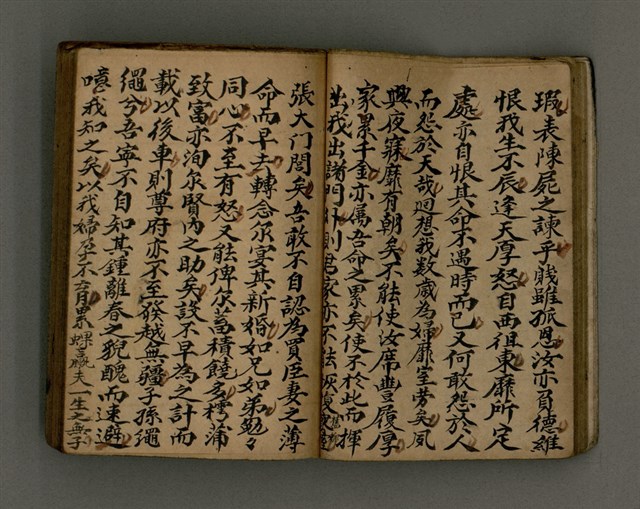 瑕表陳屍之諫乎賤雖孤恩汝亦負德維
恨我生不辰逢天厚怒自西徂東靡所定
處亦自恨其命不遇時而已又何敢怨於人
而怨於天哉迴想我数歲為婦靡室勞矣夙
興夜寐靡有朝矣不能使汝席豐履厚
家累千金亦屬吾命之累矣使不於此而揮
出我出諸門外則君家亦不能
張大门閭矣吾敢不自認為買臣妻之薄
命而早去轉念尔宴其新婚如兄如弟勉々
同心不至有怒又能俾尔菖積饒多種蒲
致富亦洵尔賢内之助矣設不早為之計而
載以後車則尊府亦不至猴越無疆子孫繩
繩兮吾寧不自知其鍾離春之貌醜而速避
噫我知之矣以我婦孕不育累蜾蠃夫一生之無子